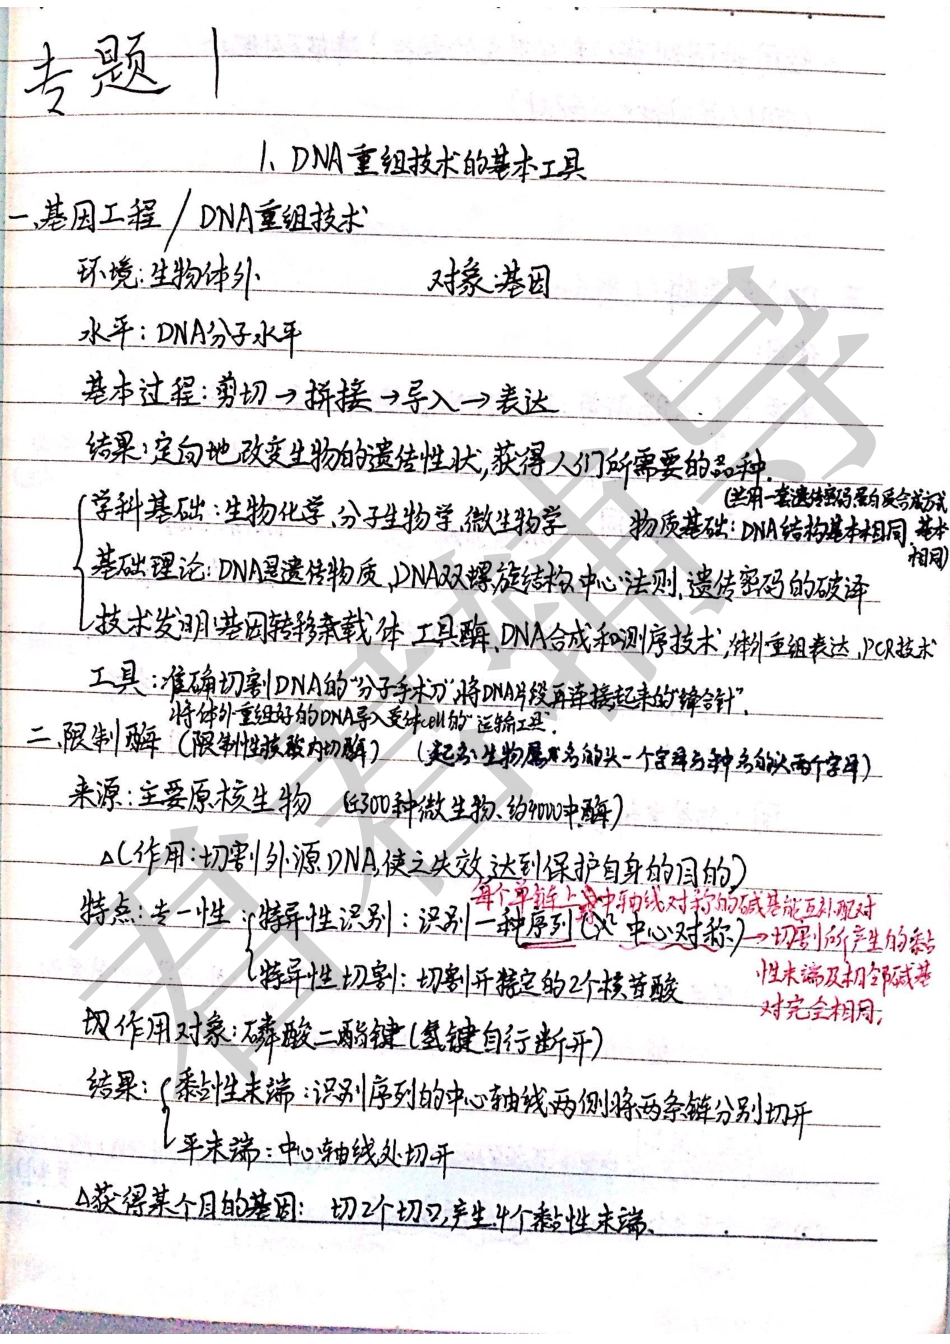 专题1
1、DNA重组技术的基本工具
一、基因工程/DNA重组技术
环境:生物体外 对象:基因
水平:DNA分子水平
基本过程:剪切→拼接→导入→表达
结果:定向地改变生物的遗传性状,获得人们所需要的品种.
学科基础:生物化学、分子生物学、微生物学 物质基础:DNA结构基本相同
(共用一套遗传密码,蛋白质合成方式基本相同)
基础理论:DNA是遗传物质、DNA双螺旋结构、中心法则、遗传密码的破译
技术发明:基因转移载体、工具酶、DNA合成和测序技术,体外重组表达,PCR技术
工具:准确切割DNA的"分子手术刀",将DNA片段再连接起来的"缝合针".
将体外重组好的DNA导入受体cell的"运输工具".
二、限制酶(限制性核酸内切酶)(起名:生物属名的头一个字母与种名的头两个字母)
来源:主要原核生物 (近300种微生物、约4000种酶)
△(作用:切割外源DNA,使之失效,达到保护自身的目的)
每个单链上中轴线对称的碱基能互补配对
特点:专一性 特异性识别:识别一种序列( 中心对称)→切割所产生的黏
性末端及相邻碱基
特异性切割:切割开特定的2个核苷酸
对完全相同;
作用对象:磷酸二酯键(氢键自行断开)
结果:黏性末端:识别序列的中心轴线两侧将两条链分别切开
平末端:中心轴线处切开
△获得某个目的基因: 切2个切口,产生4个黏性末端.
君君辅导